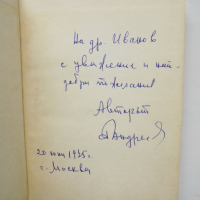 На др. Иванов
с уважение и най-
добри пожелания
Авторът
20 юни 1975 г.
г. Москва